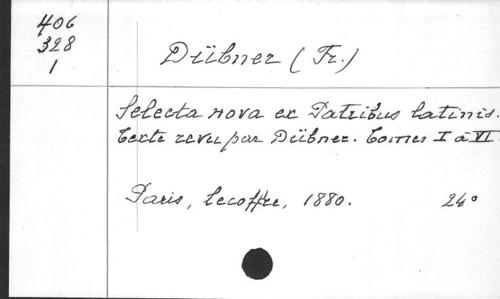 406
328
1
Dübner (Fr.)
Selecta nova ex Patribus latinis.
Texte revu par Dübner. Tomes I à VI
Paris, Lecoffre, 1880. 24°